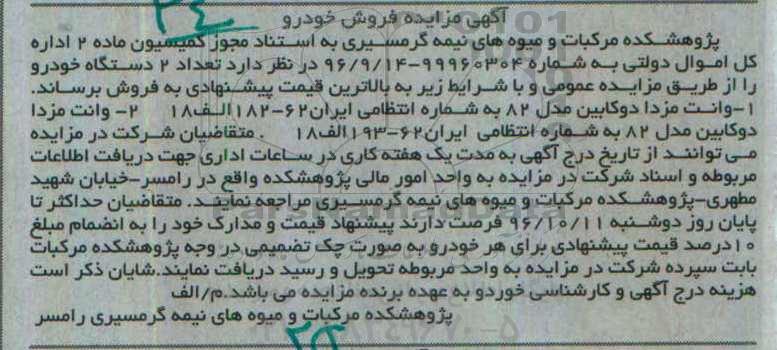 آگهی مزایده فروش خودرو
پژوهشکده مرکبات و میوه های نیمه گرمسیری به استناد مجوز کمیسیون ماده ۲ اداره
کل اموال دولتی به شماره ۹۹۹۶۰۳۰۴-۹۶/۹/۱۴ در نظر دارد تعداد ۲ دستگاه خودرو
را از طریق مزایده عمومی و با شرایط زیر به بالاترین قیمت پیشنهادی به فروش برساند.
۱-وانت مزدا دوکابین مدل ۸۲ به شماره انتظامی ایران۶۲-۱۸۲الف۱۸ ۲- وانت مزدا
دوکابین مدل ۸۲ به شماره انتظامی ایران۶۲-۱۹۳الف۱۸ . متقاضیان شرکت در مزایده
می توانند از تاریخ درج آگهی به مدت یک هفته کاری در ساعات اداری جهت دریافت اطلاعات
مربوطه و اسناد شرکت در مزایده به واحد امور مالی پژوهشکده واقع در رامسر-خیابان شهید
مطهری-پژوهشکده مرکبات و میوه های نیمه گرمسیری مراجعه نمایند. متقاضیان حداکثر تا
پایان روز دوشنبه ۹۶/۱۰/۱۱ فرصت دارند پیشنهاد قیمت و مدارک خود را به انضمام مبلغ
۱۰درصد قیمت پیشنهادی برای هر خودرو به صورت چک تضمیمی در وجه پژوهشکده مرکبات
بابت سپرده شرکت در مزایده به واحد مربوطه تحویل و رسید دریافت نمایند.شایان ذکر است
هزینه درج آگهی و کارشناسی خوردو به عهده برنده مزایده می باشد.م/الف
پژوهشکده مرکبات و میوه های نیمه گرمسیری رامسر